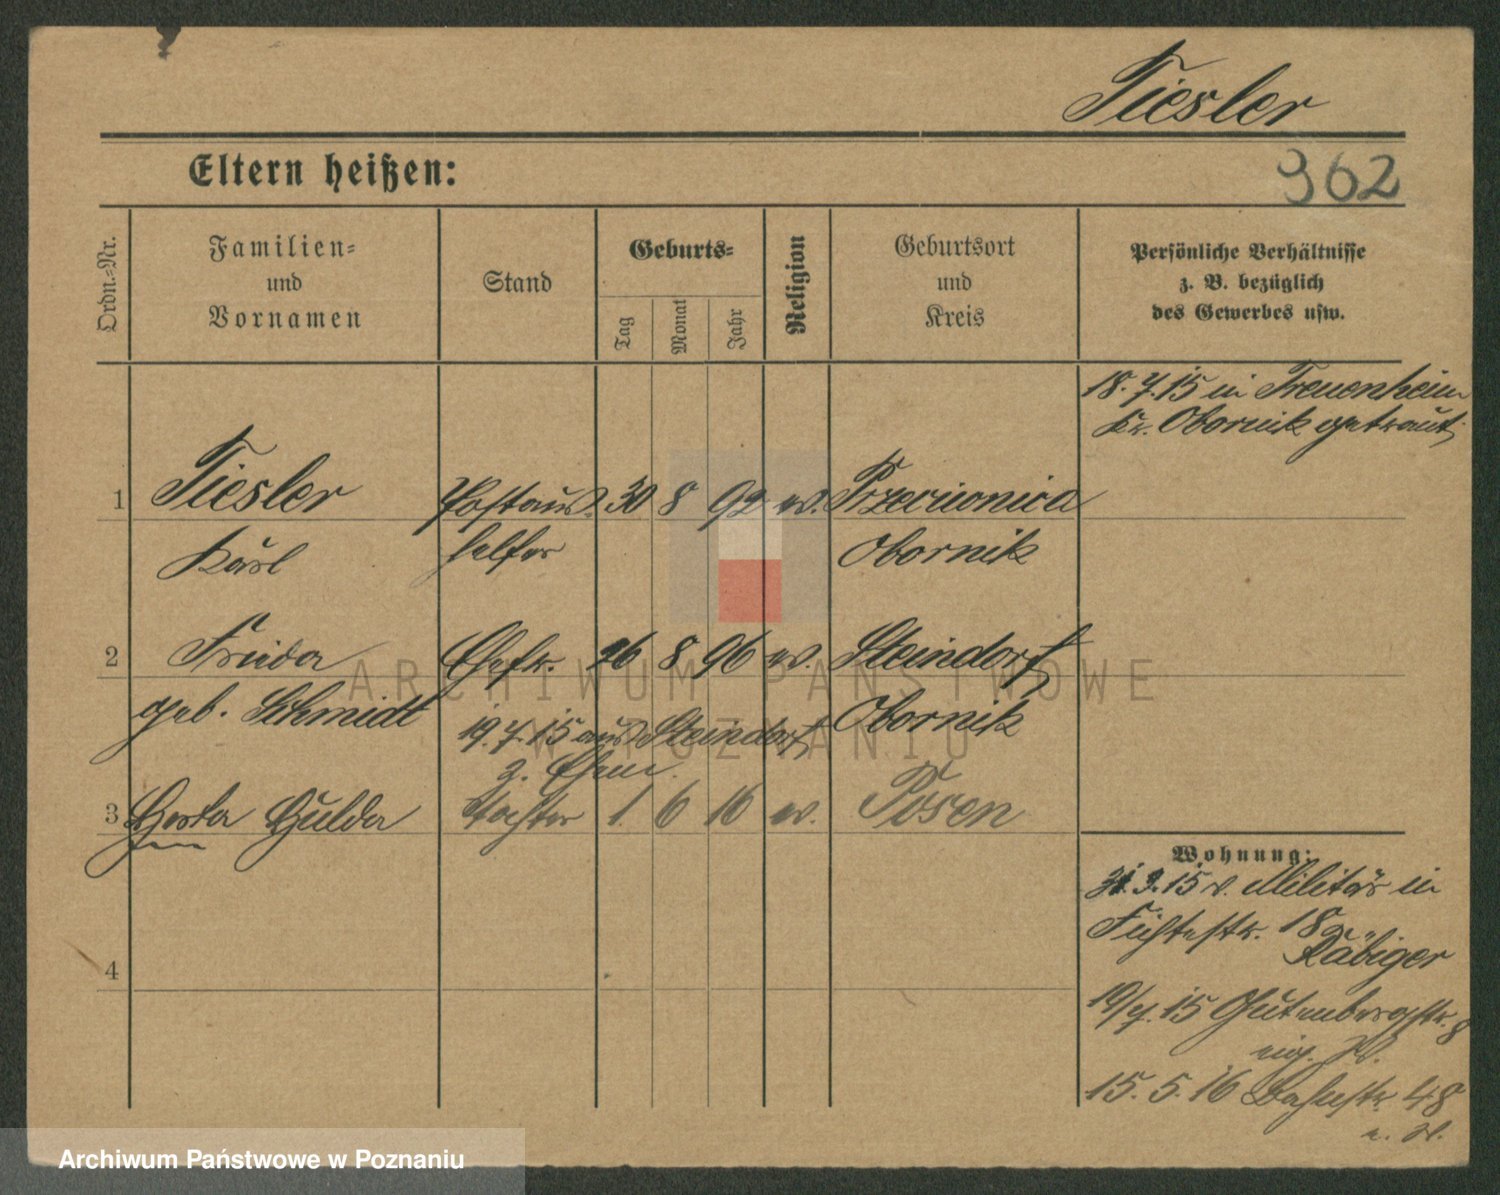 Tiesler
Eltern heißen:
962
Ordn.=Nr.
Familien=
und
Vornamen
Stand
Geburts=
Tag
Monat
Jahr
Religion
Geburtsort
und
Kreis
Persönliche Verhältnisse
z. B. bezüglich
des Gewerbes usw.
18.7.15 in Treuenheim
Kr. Obornik getraut.
1 Tiesler Postaus= 30 8 92 ev. Przeciwnica
Karl helfer Obornik
2 Frieda Ehefr. 26 8 96 ev. Steindorf
geb. Schmidt Obornik
19.7.15 aus Steindorf
z. Ehem.
3 Gerta Hulda Tochter 1. 6 16 ev. Posen
4
Wohnung:
31.3.15 v. Militär in
Fichtestr. 18
Räbiger
19/7.15 Gutenbergstr. 8
eig. W.
15.5.16 48
e. W.
ARCHIWUM PAŃSTWOWE
W POZNANIU
Archiwum Państwowe w Poznaniu